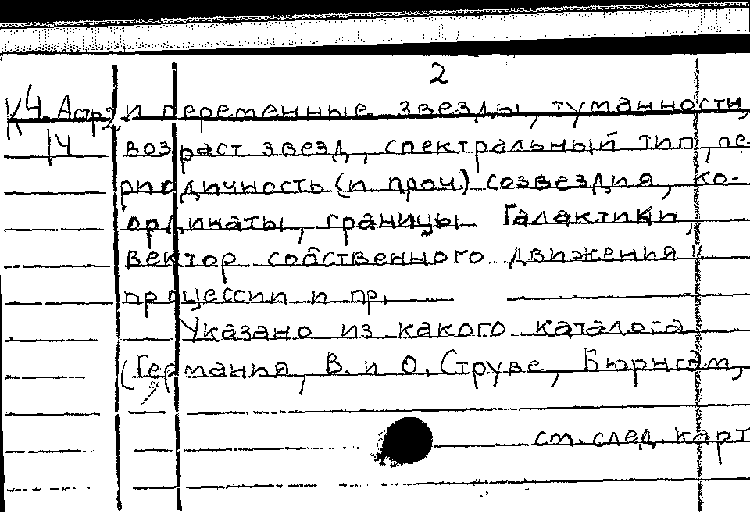 2
К4 Астр2 и переменные звезды, туманности,
14 возраст звезд, спектральный тип, пе-
риодичность (и проч.) созвездия, ко-
ординаты, границы Галактики,
вектор собственного движения,
процессии и пр.
Указано из какого каталога
(Германия, В. и О. Струве, Бюрнгам,
см. след. карт